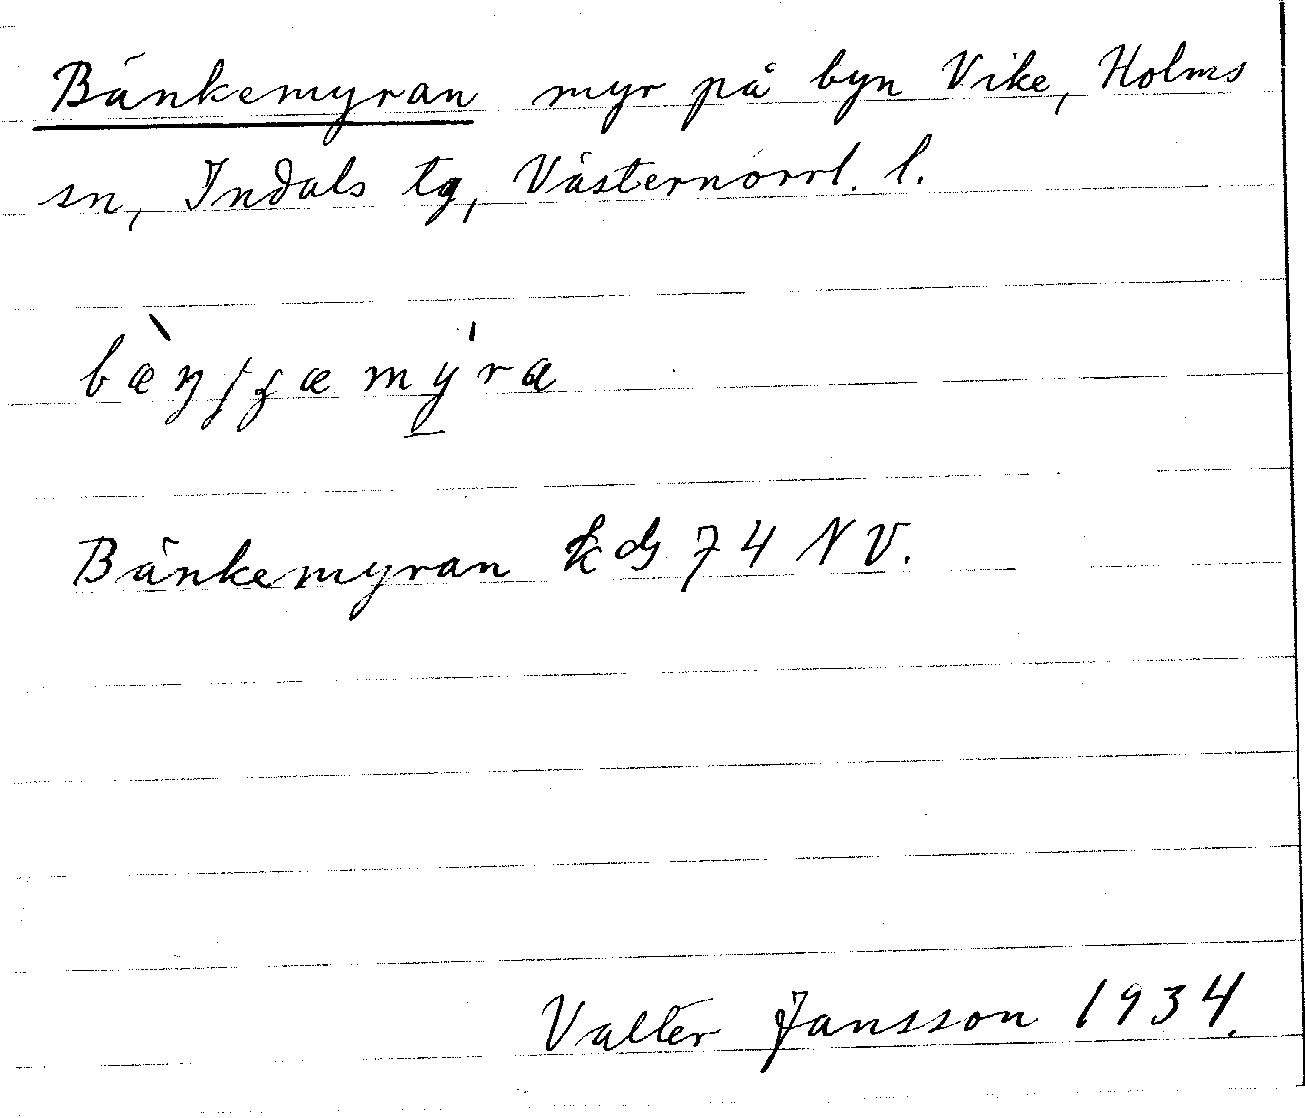 Bänkemyran myr på byn Vike, Holms
sn, Indals tg, Västernorrl. l.
Bänkemyran kbl 74 NV.
Valter Jansson 1934.